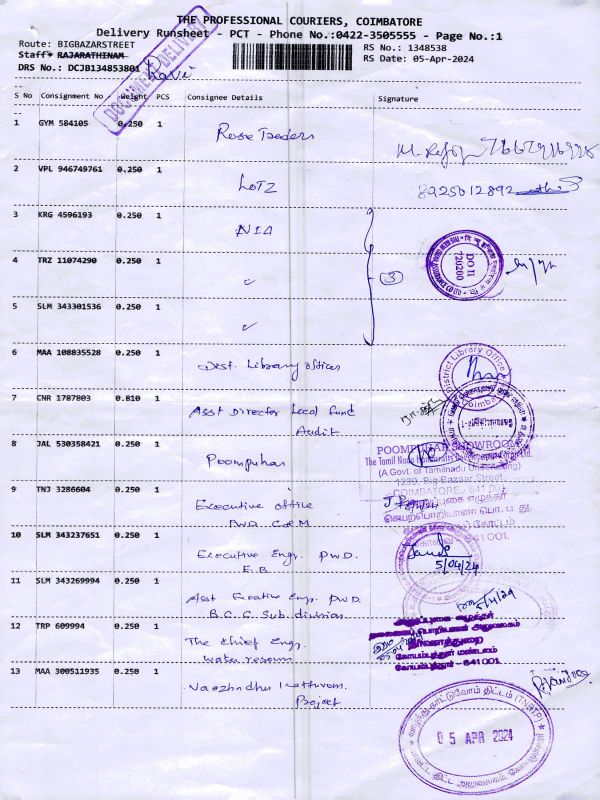 THE PROFESSIONAL COURIERS, COIMBATORE
Delivery Runsheet - PCT - Phone No.:0422-3505555 - Page No.:1
Route: BIGBAZARSTREET
RS No.: 1348538
Staff: RAJARATHINAM
RS Date: 05-Apr-2024
DRS No.: DCJB134853801 Ravi
DOCUMENT DELIVERY
S No Consignment No Weight PCS Consignee Details Signature
1 GYM 584105 0.250 1 Rose Traders 7667916995
2 VPL 946749761 0.250 1 LOTZ 8925012892
3 KRG 4596193 0.250 1 NIA
4 TRZ 11074290 0.250 1 ✓ 3
DO II
720200
5 SLM 343301536 0.250 1 ✓
6 MAA 108835528 0.250 1 Dist. Library officer
District Library Office
7 CNR 1787803 0.810 1 Asst Director Local Fund
Audit
8 JAL 530358421 0.250 1 Poompuhar
POOMPUHAR SHOWROOM
(A Govt. of Tamilnadu Undertaking)
1239, Big Bazaar Street
COIMBATORE - 641 001
9 TNJ 3286604 0.250 1 Executive office
PWD. C&M
10 SLM 343237651 0.250 1 Executive Engr. PWD.
E.B
5/04/24
11 SLM 343269994 0.250 1 Asst Exective Engr. PWD.
B.C.C. Sub. division
12 TRP 609994 0.250 1 The Chief Engr.
Water resours
கோயம்புத்தூர் மண்டலம்
கோயம்புத்தூர் - 641 001
13 MAA 300511935 0.250 1 Vaazhndhu Kattuvom
Project
வாழ்ந்து காட்டுவோம் திட்டம் (TNRTP)
05 APR 2024